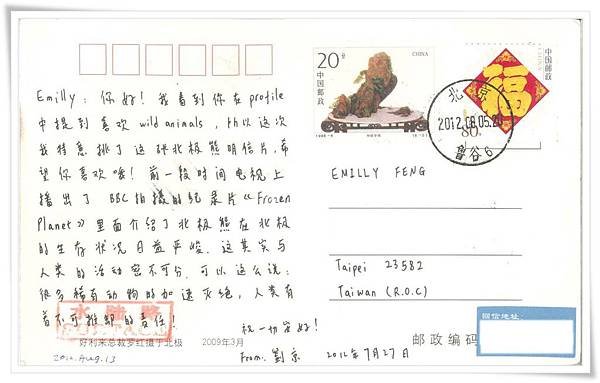 Emilly：你好！我看到你在profile
中提到喜欢wild animals，所以这次
我特意挑了这张北极熊明信片，希
望你喜欢噢！前一段时间电视上
播出了BBC拍摄的纪录片《Frozen
Planet》里面介绍了北极熊在北极
的生存状况日益严峻。这其实与
人类的活动密不可分，可以这么说：
很多稀有动物的加速灭绝，人类有
着不可推卸的责任！
祝一切安好！
From: 劉京 2012年7月27日
水陆路
好利来总裁罗红摄于北极 2009年3月
2012.Aug.13
20分
CHINA
中国邮政
中国邮政
福
80分
北京
2012.08.05.20
鲁谷6
EMILLY FENG
Taipei 23582
Taiwan (R.O.C)
回信地址:
邮政编码